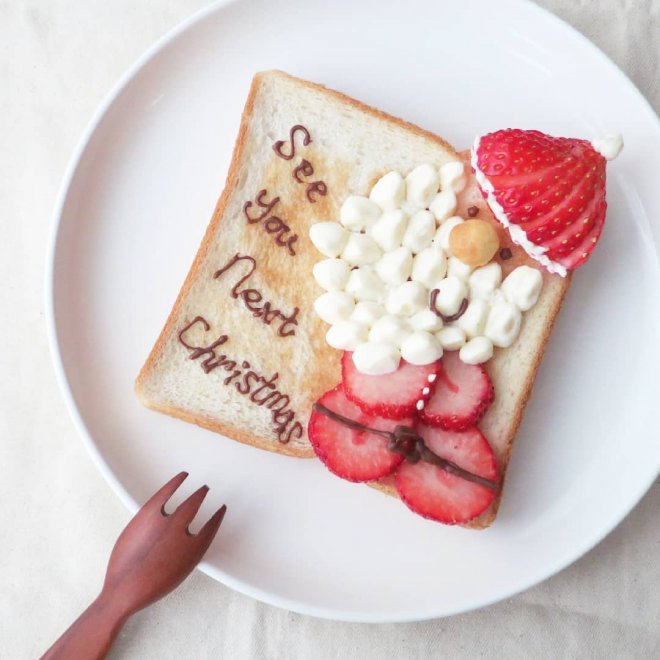 See
You
Next
Christmas